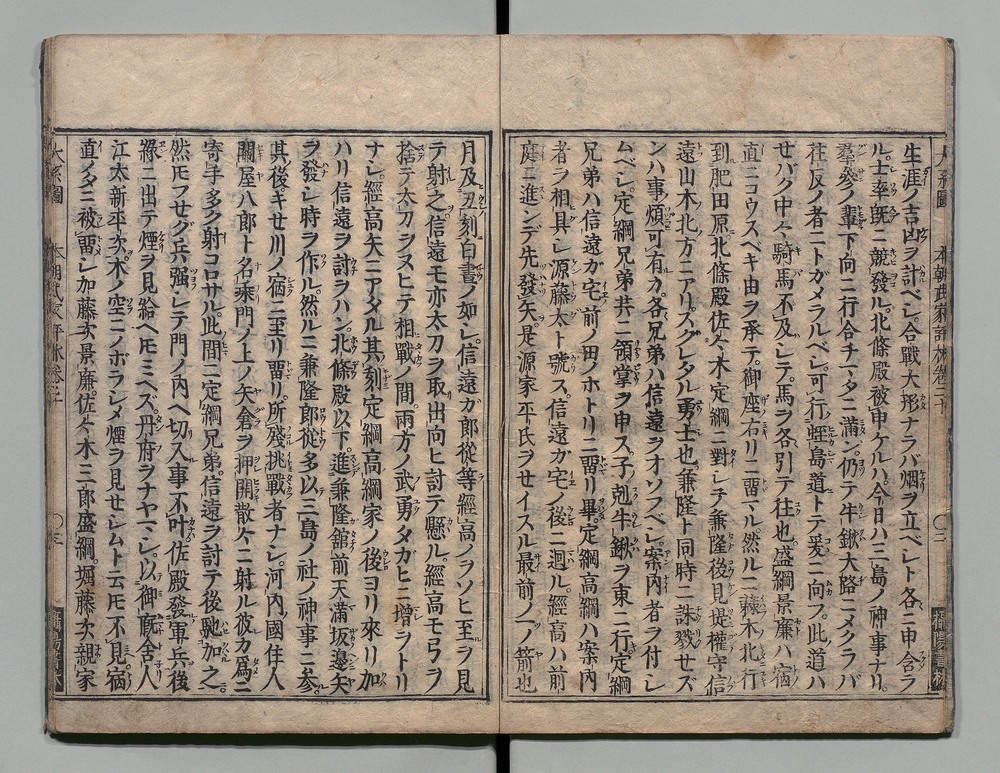 生涯ノ吉凶ヲ計ベシ。合戰大形ナラバ烟ヲ立ベシト各ニ申含ラ
ル。士率既ニ競發ル。北條殿被申ケルハ、今日ハ三島ノ神事ナリ。
羣參ノ輩下向ニ行合チマタニ滿ン。仍テ牛鍬大路ニメクラバ
往反ノ者ニトガメラルベシ。可行蛭島道トテ爰ニ向フ。此道ハ
せバク中々騎馬不及シテ馬ラ各引テ往也。盛綱景廉ハ宿
直ニコウスベキ由ヲ承テ。御座右リニ畱マル。然ルニ棘木ノ北行
到肥田原。北條殿佐々木定綱ニ對シテ兼隆後見堤權守信
遠山木北方ニアリ。スグレタル勇士也。兼隆ト同時ニ誅戮せズ
ンハ事煩可有カ。各兄弟ハ信遠ヲオソフベシ。案内者ラ付シ
ムベシ。定綱兄弟共ニ領掌ヲ申ス。子剋牛鍬ヲ東ニ行。定綱
兄弟ハ信遠カ宅ノ前ノ田ノホトリニ畱リ畢。定綱高綱ハ案内
者ラ相具シ源藤太ト號ス。信遠カ宅ノ後ニ廻ル。經高ハ前
庭ニ進ンデ先發矢。是源家平氏ヲせイスル最前ノ一ノ箭也
月及丑刻白晝ノ如シ。信遠カ郎從等經高ノラソヒ至ラ見
テ射之。信遠モ亦太刀ヲ取出向ヒ討テ懸ル。經高モ弓ヲ
捨テ太刀ラヌヒテ相戰ノ間。兩方ノ武勇タガヒニ增ラトリ
ナシ。經高矢ニアタル其刻定綱高綱家ノ後ヨリ來リ加
ハリ信遠ヲ討ラハン。北條殿以下進兼隆館前天滿坂邊矢
ラ發シ時ラ作ル。然ルニ兼隆郎從多以三島ノ社ノ神事ニ參。
其後キせ川ノ宿ニ至リ畱リ。所殘挑戰者ナシ。河内國住人
關屋八郎ト名乘門ノ上ノ矢倉ヲ押開散々ニ射ル。彼カ爲ニ
寄手多ク射コロサル。此間ニ定綱兄弟。信遠ラ討テ後馳加之。
然𪜈フせグ兵强シテ門ノ内ヘ切入事不叶。佐殿發軍兵後
緣ニ出テ煙ヲ見給ヘ𪜈ミヘズ。丹府ヲナヤマシ。以御厩舍人
江太新平次。木ノ空ニノボラシメ煙ラ見せシムト云𪜈不見。宿
直ノタニ被畱シ加藤次景廉。佐々木三郎盛綱。堀藤次親家
大系圖
本朝武家評林卷二十
〇三